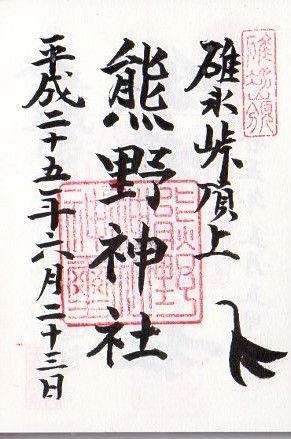 碓氷峠頂上
熊野神社
平成二十五年六月二十三日